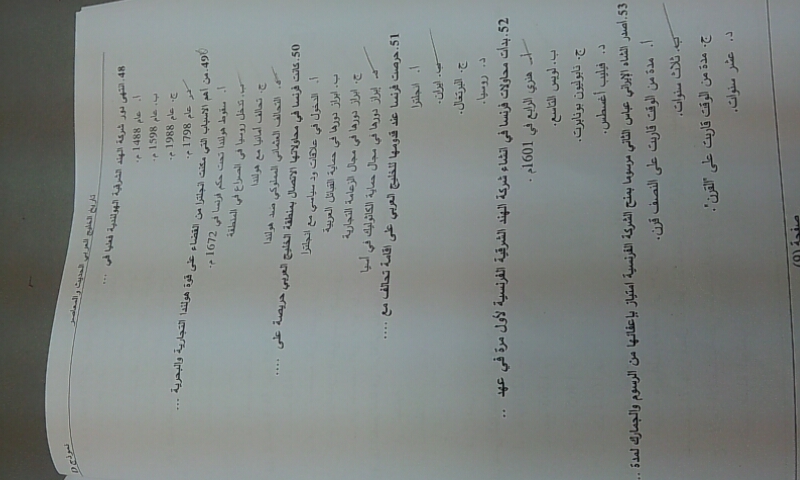 نموذج (أ)
تاريخ الخليج العربي الحديث والمعاصر
48. انتهى دور شركة الهند الشرقية الهولندية فعليا في ...
أ. عام 1488 م.
ب. عام 1598 م.
ج. عام 1988 م.
د. عام 1798 م.
49. من اهم الاسباب التي مكنت انجلترا من القضاء على قوة هولندا التجارية والبحرية ...
أ. سقوط هولندا تحت حكم فرنسا في 1672 م.
ب. تدخل روسيا في الصراع في المنطقة
ج. تحالف ألمانيا مع هولندا
د. التحالف العثماني المملوكي ضد هولندا
50. كانت فرنسا في محاولاتها الاتصال بمنطقة الخليج العربي حريصة على ....
أ. الدخول في علاقات ود سياسي مع انجلترا
ب. ابراز دورها في حماية القبائل العربية
ج. ابراز دورها في مجال الزعامة التجارية
د. ابراز دورها في مجال حماية الكاثوليك في آسيا
51. حرصت فرنسا عند قدومها للخليج العربي على اقامة تحالف مع ....
أ. انجلترا
ب. ايران.
ج. البرتغال.
د. روسيا.
52. بدأت محاولات فرنسا في انشاء شركة الهند الشرقية الفرنسية لأول مرة في عهد ..
أ. هنري الرابع في 1601م.
ب. لويس التاسع.
ج. نابوليون بونابرت.
د. فيليب أغسطس.
53. أصدر الشاه الايراني عباس الثاني مرسوما يمنح الشركة الفرنسية امتياز بإعفائها من الرسوم والجمارك لمدة ..
أ. مدة من الوقت قاربت على النصف قرن.
ب. ثلاث سنوات.
ج. مدة من الوقت قاربت على "القرن".
د. عشر سنوات.